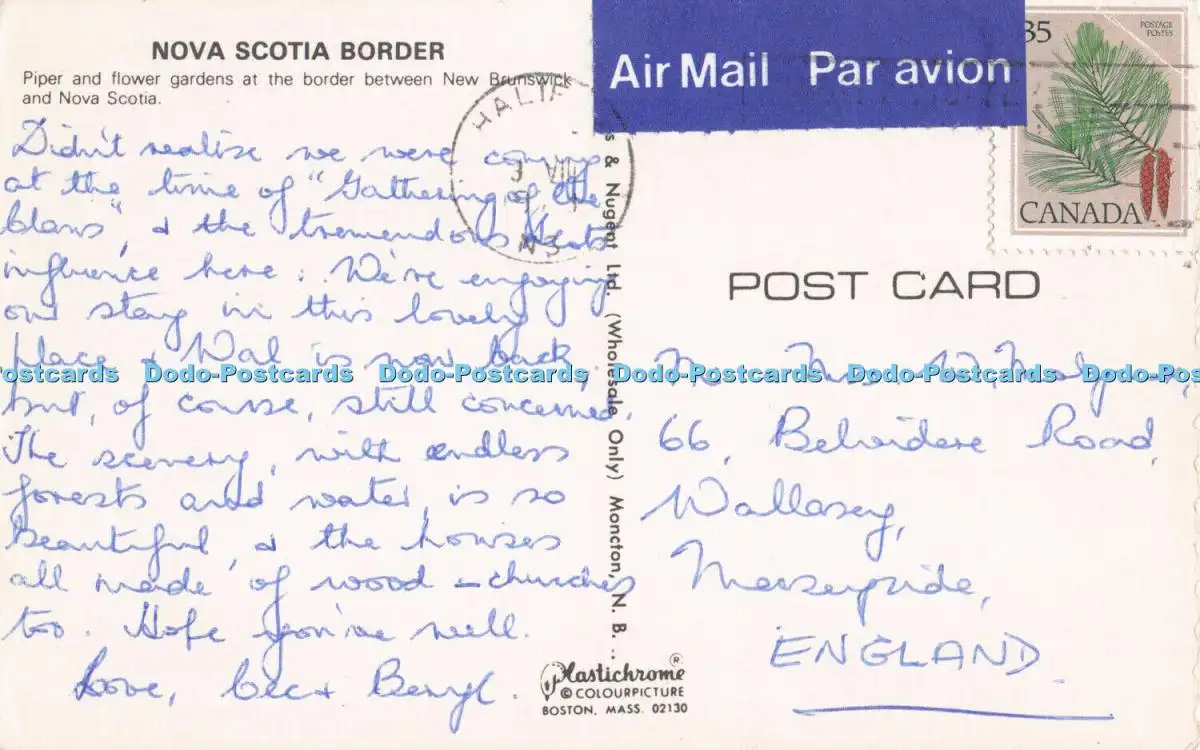 NOVA SCOTIA BORDER
Piper and flower gardens at the border between New Brunswick
and Nova Scotia.
Didn't realise we were coming
at the time of "Gathering of the
Clans", & the tremendous Scots
influence here. We're enjoying
our stay in this lovely
place & Wal is now back,
but, of course, still concerned.
The scenery, with endless
forests and water, is so
beautiful, & the houses
all made of wood – churches
too. Hope you're well.
Love, Cec & Beryl.
Air Mail Par avion
35
POSTAGE
POSTES
CANADA
HALIF
NS
s & Nugent Ltd. (Wholesale Only) Moncton, N. B.
POST CARD
Mrs
66, Belvidere Road,
Wallasey,
Merseyside,
ENGLAND
Plastichrome®
© COLOURPICTURE
BOSTON, MASS. 02130
ostcards, Dodo-Postcards, Dodo-Postcards, Dodo-Postcards, Dodo-Postcards, Dodo-Pos